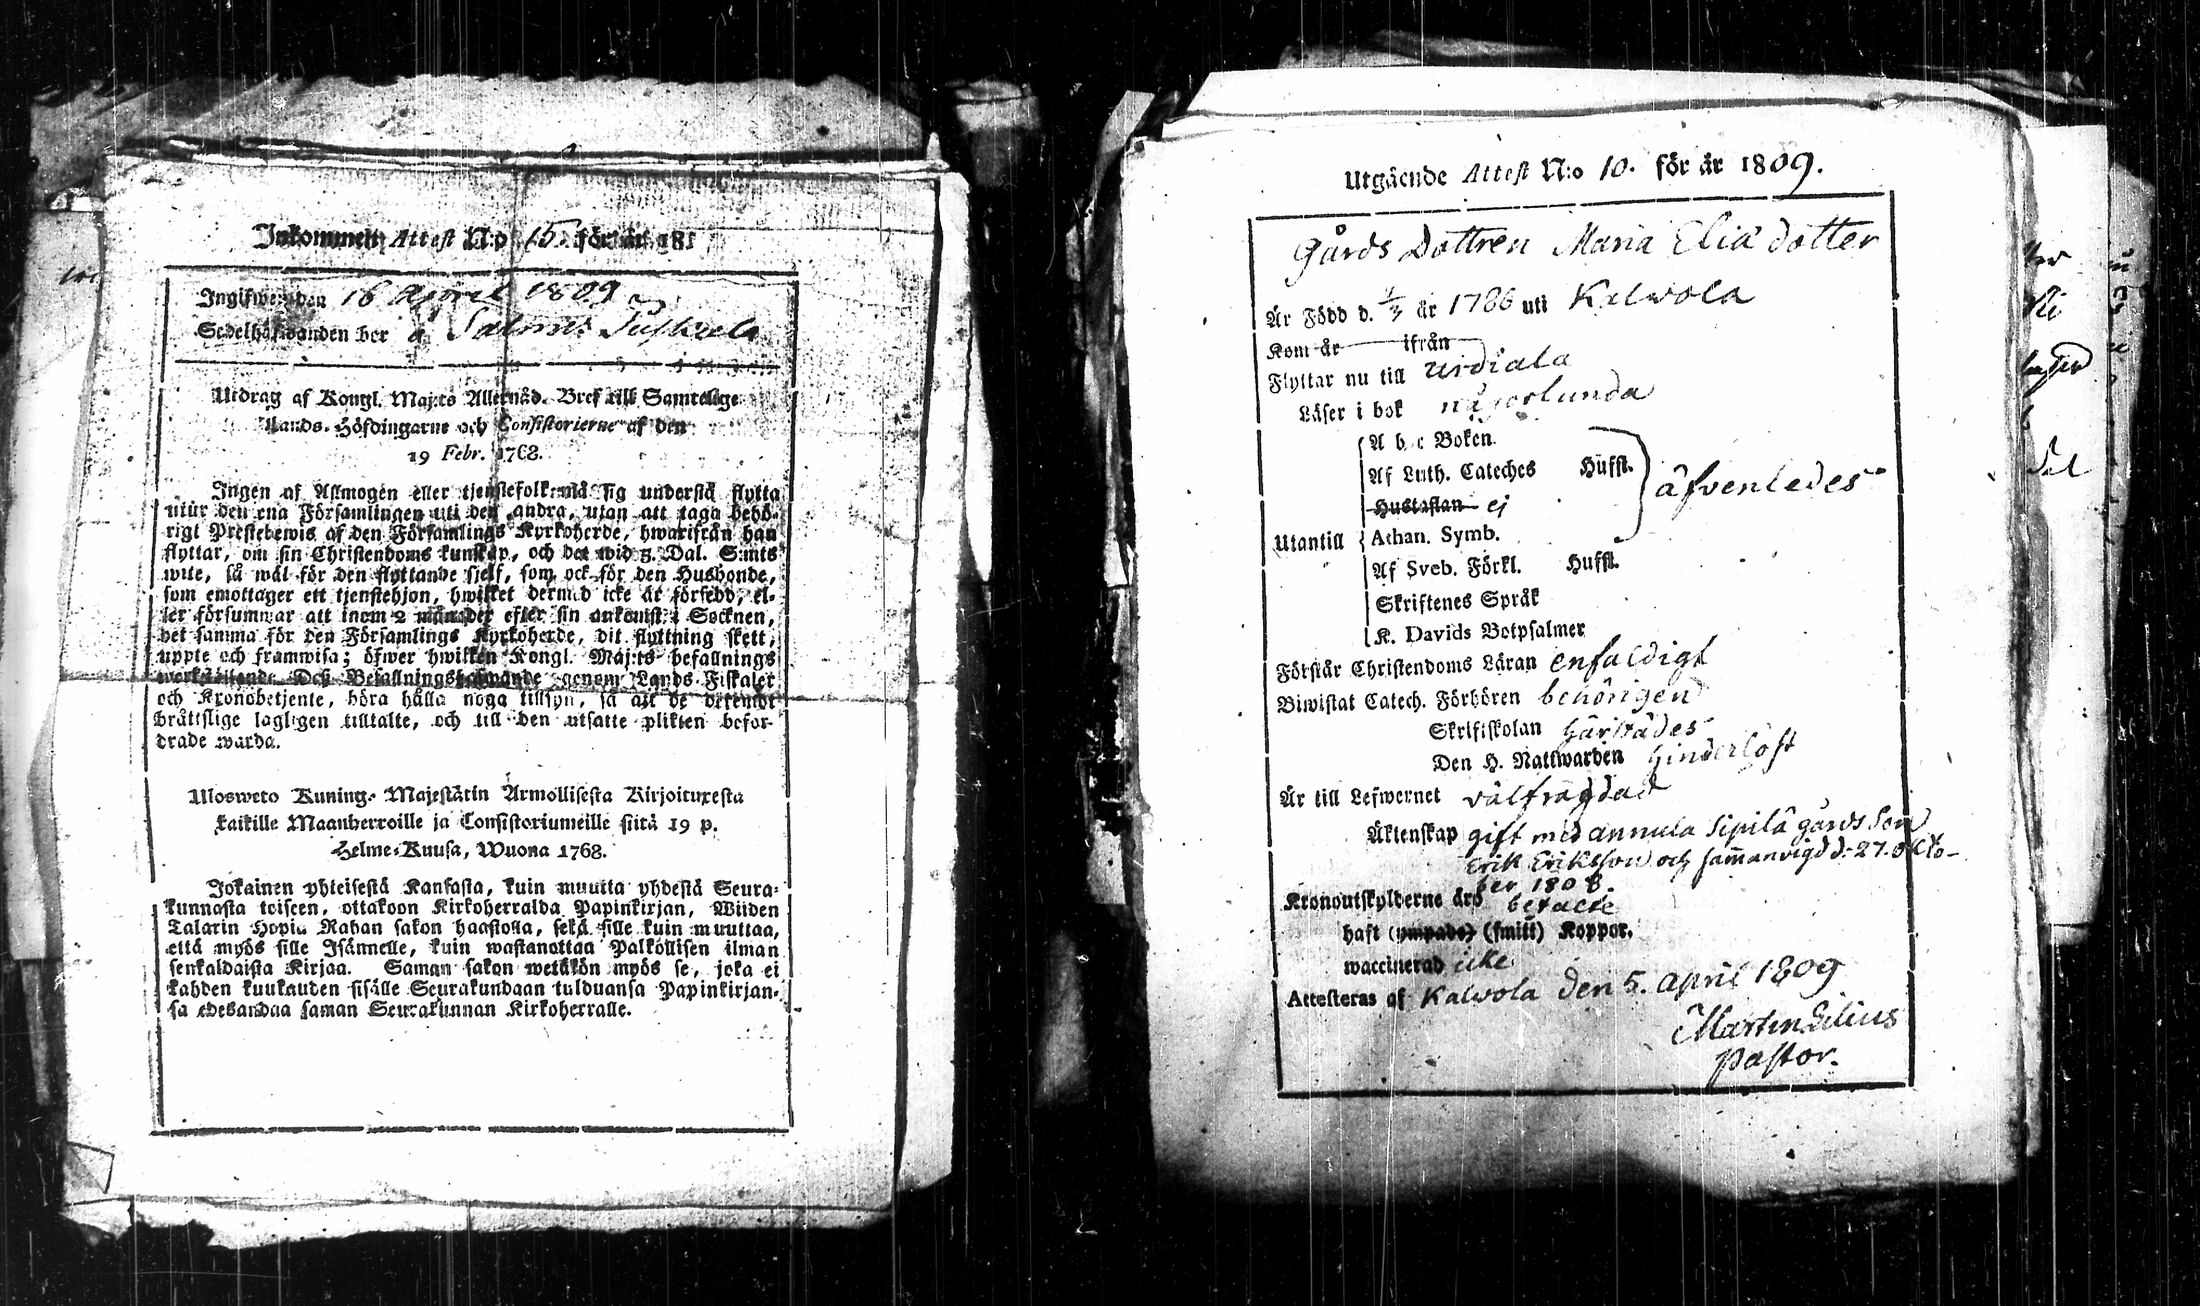 Inkommen Attest N:o 15. för år 181
Ingifwen den 16 April 1809
Sedelhafwanden bor å
Utdrag af Kongl. Maj:ts Allernåd. Bref till Samtelige
Lands-Höfdingarne och Consistorierne af den
19 Febr. 1768.
Ingen af Allmogen eller tjenstefolk må sig understå flytta
utur den ena Församlingen uti den andra, utan att taga behö-
rigt Prestebewis af den Församlings Kyrkoherde, hwarifrån han
flyttar, om sin Christendoms kunskap, och det wid 5. Dal. S:mts
wite, så wäl för den flyttande sjelf, som ock för den Husbonde,
som emottager ett tjenstehjon, hwilket dermed icke är försedd, el-
ler försummar att inom 2 månader efter sin ankomst i Socknen,
det samma för den Församlings Kyrkoherde, dit flyttning skett,
uppte och framwisa; öfwer hwilken Kongl. Maj:ts befallnings
werkställande Deß Befallningshafwande genom Lands-Fiskaler
och Kronobetjente, böra hålla noga tillsyn, så att de dermot
bråttslige lagligen tilltalte, och till den utsatte plikten befor-
drade warda.
Ulosweto Kuning. Majestätin Armollisesta Kirjoituxesta
kaikille Maanherroille ja Consistoriumeille siitä 19 p.
Helme-Kuusa, Wuona 1768.
Jokainen yhteisestä Kansasta, kuin muutta yhdestä Seura-
kunnasta toiseen, ottakoon Kirkoherralda Papinkirjan, Wiiden
Talarin Hopia Rahan sakon haastolla, sekä sille kuin muuttaa,
että myös sille Isännelle, kuin wastanottaa Palkollisen ilman
senkaldaista Kirjaa. Saman sakon wetäkön myös se, joka ei
kahden kuukauden sisälle Seurakundaan tulduansa Papinkirjan-
sa edesandaa saman Seurakunnan Kirkoherralle.
Utgående Attest N:o 10. för år 1809.
Gårds Dottren Maria Eliæ dotter
Är Född d. 1/3 år 1786 uti Kalwola
Kom år ifrån
Flyttar nu till Urdiala
Läser i bok någorlunda
A b c Boken
Af Luth. Cateches Husfl.
Hustaflan ej
åfvenledes
Utantill Athan. Symb.
Af Sveb. Förkl. Husfl.
Skriftenes Språk
K. Davids Botpsalmer
Förstår Christendoms Läran enfaldigt
Biwistat Catech. Förhören behörigen
Skriftskolan
Den H. Nattwarden hinderlöst
Är till Lefwernet välfrägdad
Äktenskap gift med Annula Sipilä gårds Son
Erik Eriksson och sammanvigd d: 27. Octo-
ber 1808.
Kronoutskylderne äro betalte
haft (ympade) (smitt) Koppor.
waccinerad icke
Attesteras af Kalvola den 5. April 1809
Martin Gilius
Pastor.